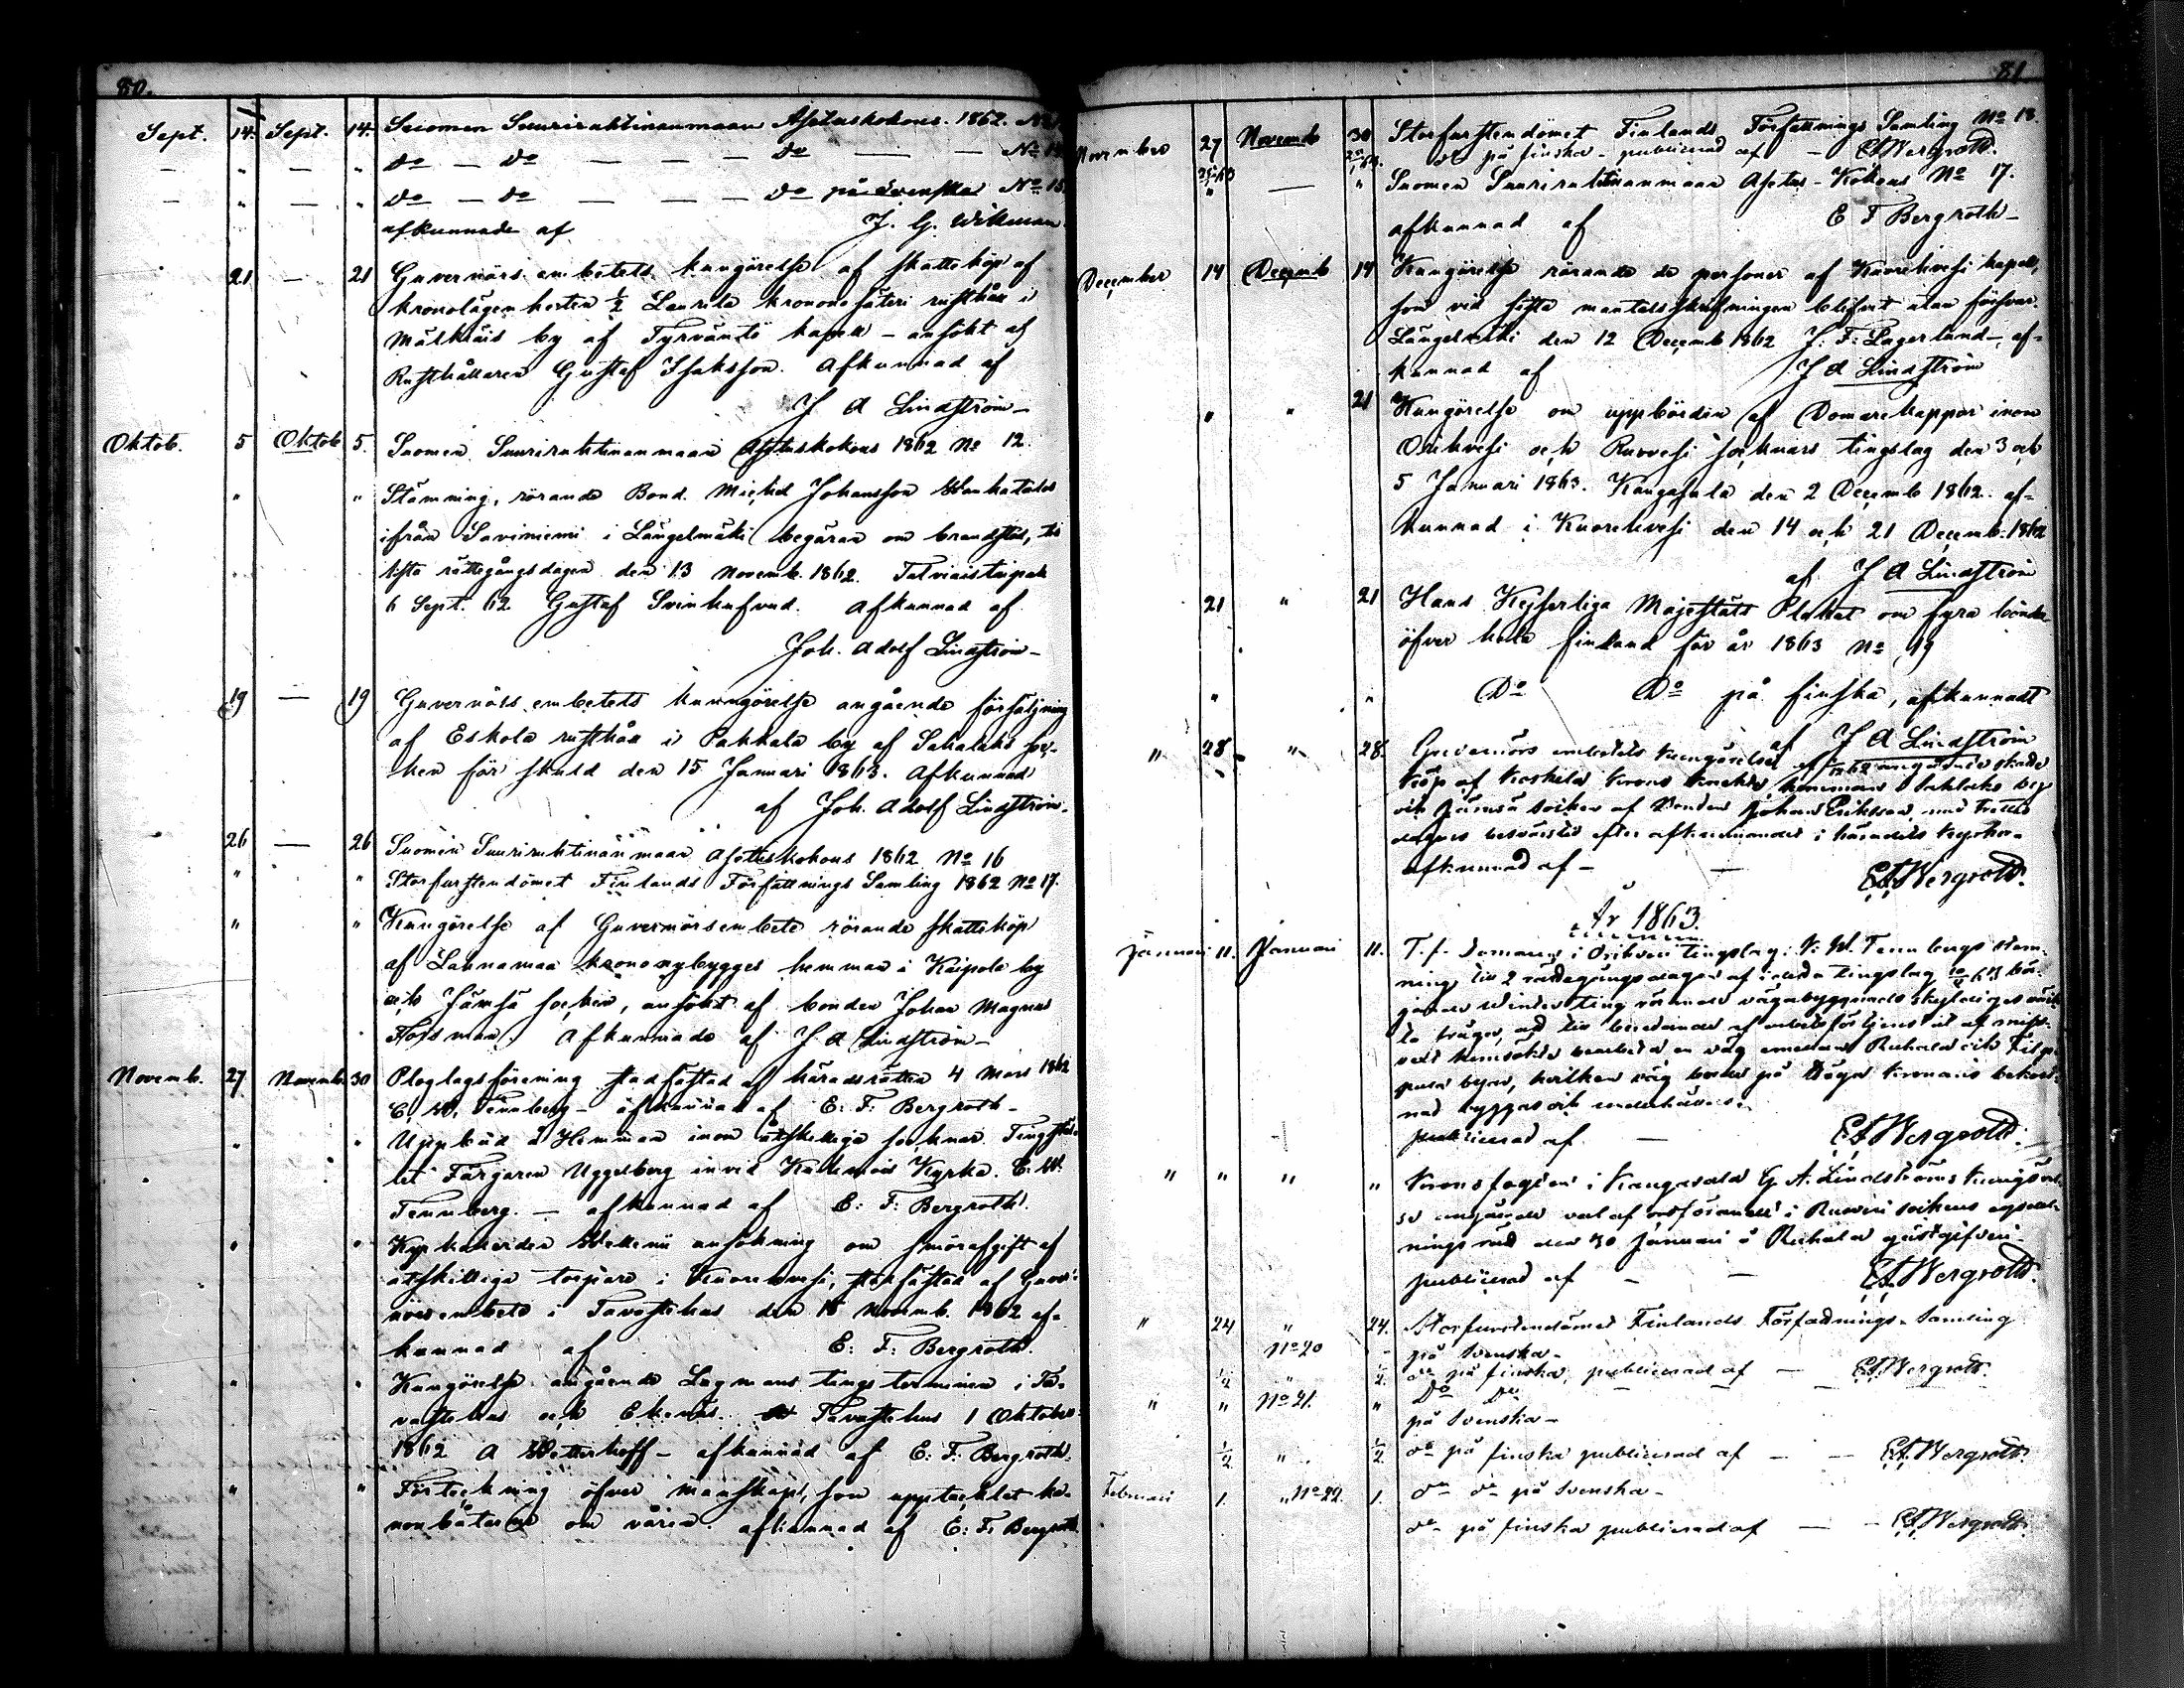 80.
Sept. 14. Sept. 14. Suomen Suuriruhtinanmaan Asetuskokous. 1862. No
" " do — do — — — do — — No 14
" " do — do — — — do på Svenska No 15
afkunnade af J. G. Wikman
21 — 21 Guvernörs embetets kungörelse af skatteköp af
kronolägenheten ½ Laurila kronosäteri rusthåll i
Mälkiäis by af Tyrväntö kapell – ansökt af
Rusthållaren Gustaf Isaksson. Afkunnad af
J A Lindström –
Oktob. 5 Oktob 5. Suomen Suuriruhtinanmaan Asetuskokous 1862 No 12.
" " Stämning, rörande Bond. Michel Johansson
ifrån Saviniemi i Längelmäki begäran om brandstod, till
sista rättegångsdagen den 13 Novemb. 1862.
6 Sept. 62 Gustaf Svinhufvud. Afkunnad af
Joh. Adolf Lindström –
19 — 19 Guvernörs embetets kunngörelse angående försäljning
af Eskola rusthåll i Pakkala by af Sahalaks soc-
ken för skuld den 15 Januari 1863. Afkunnad
af Joh. Adolf Lindström.
26 — 26 Suomen Suuriruhtinanmaan Asetuskokous 1862 No 16
" " Storfurstendömet Finlands Författnings Samling 1862 No 17.
" " Kungörelse af Guvernörsembete rörande skatteköp
af Lahnamaa krononybygges hemman i Kaipola by
och Jämsä socken, ansökt af bonden Johan Magnus
Afkunnade af J A Lindström –
Novemb. 27 Novemb. 30 Ploglagsförening stadfästad af häradsrätten 4 Mars 1862
E. W. Tennberg – afkunnad af E. F. Bergroth –
" " Uppbud å Hemman inom åtskilliga socknar. Tingsstäl-
let Färgaren Uggelberg invid Kuhmois Kyrka. E. W.
Tennberg. — afkunnad af E. F. Bergroth.
" " Kyrkoherden Wallenii ansökning om smörafgift af
åtskilliga torpare i Kuorehvesi, stadfästad af Guver-
nörsembete i Tavastehus den 18 Novemb. 1862 af-
kunnad af E. F. Bergroth.
" " Kungörelse angående Lagmans tings terminen i Ta-
vastehus och Ekenäs. Tavastehus 1 Oktober
1862 A Wetterhoff – afkunnad af E. F. Bergroth.
" " Förteckning öfver manskapet, som upptacklat ka-
nonbåtarne om våren. afkunnad af E. F. Bergroth.
81
November 27 Novemb 30 Storfurstendömet Finlands Författnings Samling No 18.
do på finska – publicerad af — E F Bergroth.
" — " Suomen Suuriruhtinanmaan Asetus-Kokous No 17.
afkunnad af E F Bergroth –
December 14 Decemb 14 Kungörelse rörande de personer af Kuorehvesi kapell,
som vid sista mantalsskrifningen blifvit utan försvar.
Längelmäki den 12 Decemb 1862 J. F. Lagerlund –, af-
kunnad af J A Lindström
" " 21 Kungörelse om uppbörden af Domarekappor inom
Orihvesi och Ruovesi socknars tingslag den 3 och
5 Januari 1863. Kangasala den 2 Decemb 1862. af-
kunnad i Kuorehvesi den 14 och 21 Decemb. 1862
af J A Lindström
21 " 21 Hans Kejserliga Majestäts Plakat om fyra böndag
öfver hela Finland för år 1863 No 19
" " Do Do på finska, afkunnadt
af J A Lindström
" 28 " 28. Guvernörs embetets kungörelse af 1862 angående skatte
köp af Koskela krono hemman
och Jämsä socken af Bonden Johan Eriksson med
dagars besvärstid efter afkunnandet i häradets kyrkor –
afkunnad af – — E F Bergroth.
År 1863.
Januari 11. Januari 11. T. f. Domaren i Orihvesi tingslag: Tennbergs stäm-
ning till 2 rättegångsdagen af
Winter ting rörande vägabyggnads skyldighet
en väg emellan Ruhala och
byar, hvilken väg på Höga Kronans bekost-
nad bygges och underhålles.
publicerad af — E F Bergroth.
" " " " Kronofogden i Kangasala G. A. Lindströms kungörel-
se angående val af ordförande i Ruovesi sockens
den 30 Januari å Ruhala gästgifveri –
publicerad af – — E F Bergroth.
" 24 " 24. Storfurstendömet Finlands Författnings-Samling
No 20 – på Svenska –
½ " ½ do på finska, publicerad af — E F Bergroth.
" " No 21. " Do Do
på Svenska –
½ " ½ do på finska publicerad af — — E F Bergroth.
Februari 1. " No 22. 1. do do på Svenska –
do på finska publicerad af — — E F Bergroth.